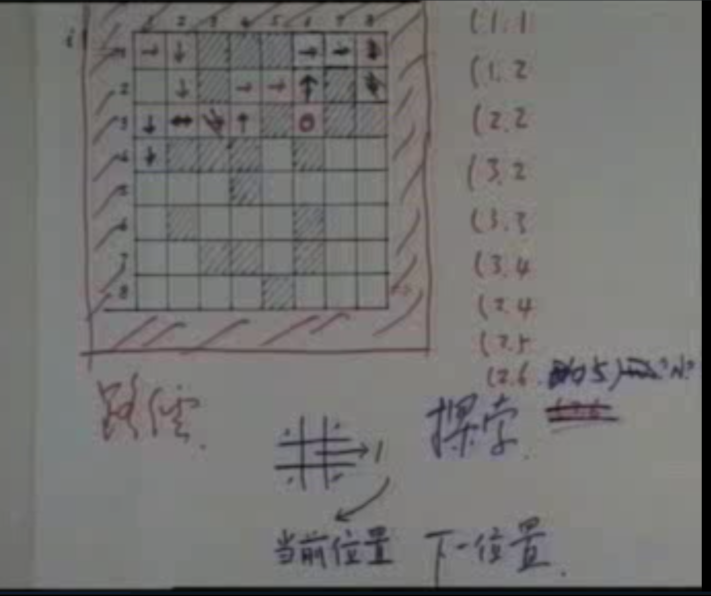 i
1 2 3 4 5 6 7 8
2
3
4
5
6
7
8
(1,1
(1,2
(2,2
(3,2
(3,3
(3,4
(2,4
(2,5
(2,6
路径
探索
当前位置 下一位置